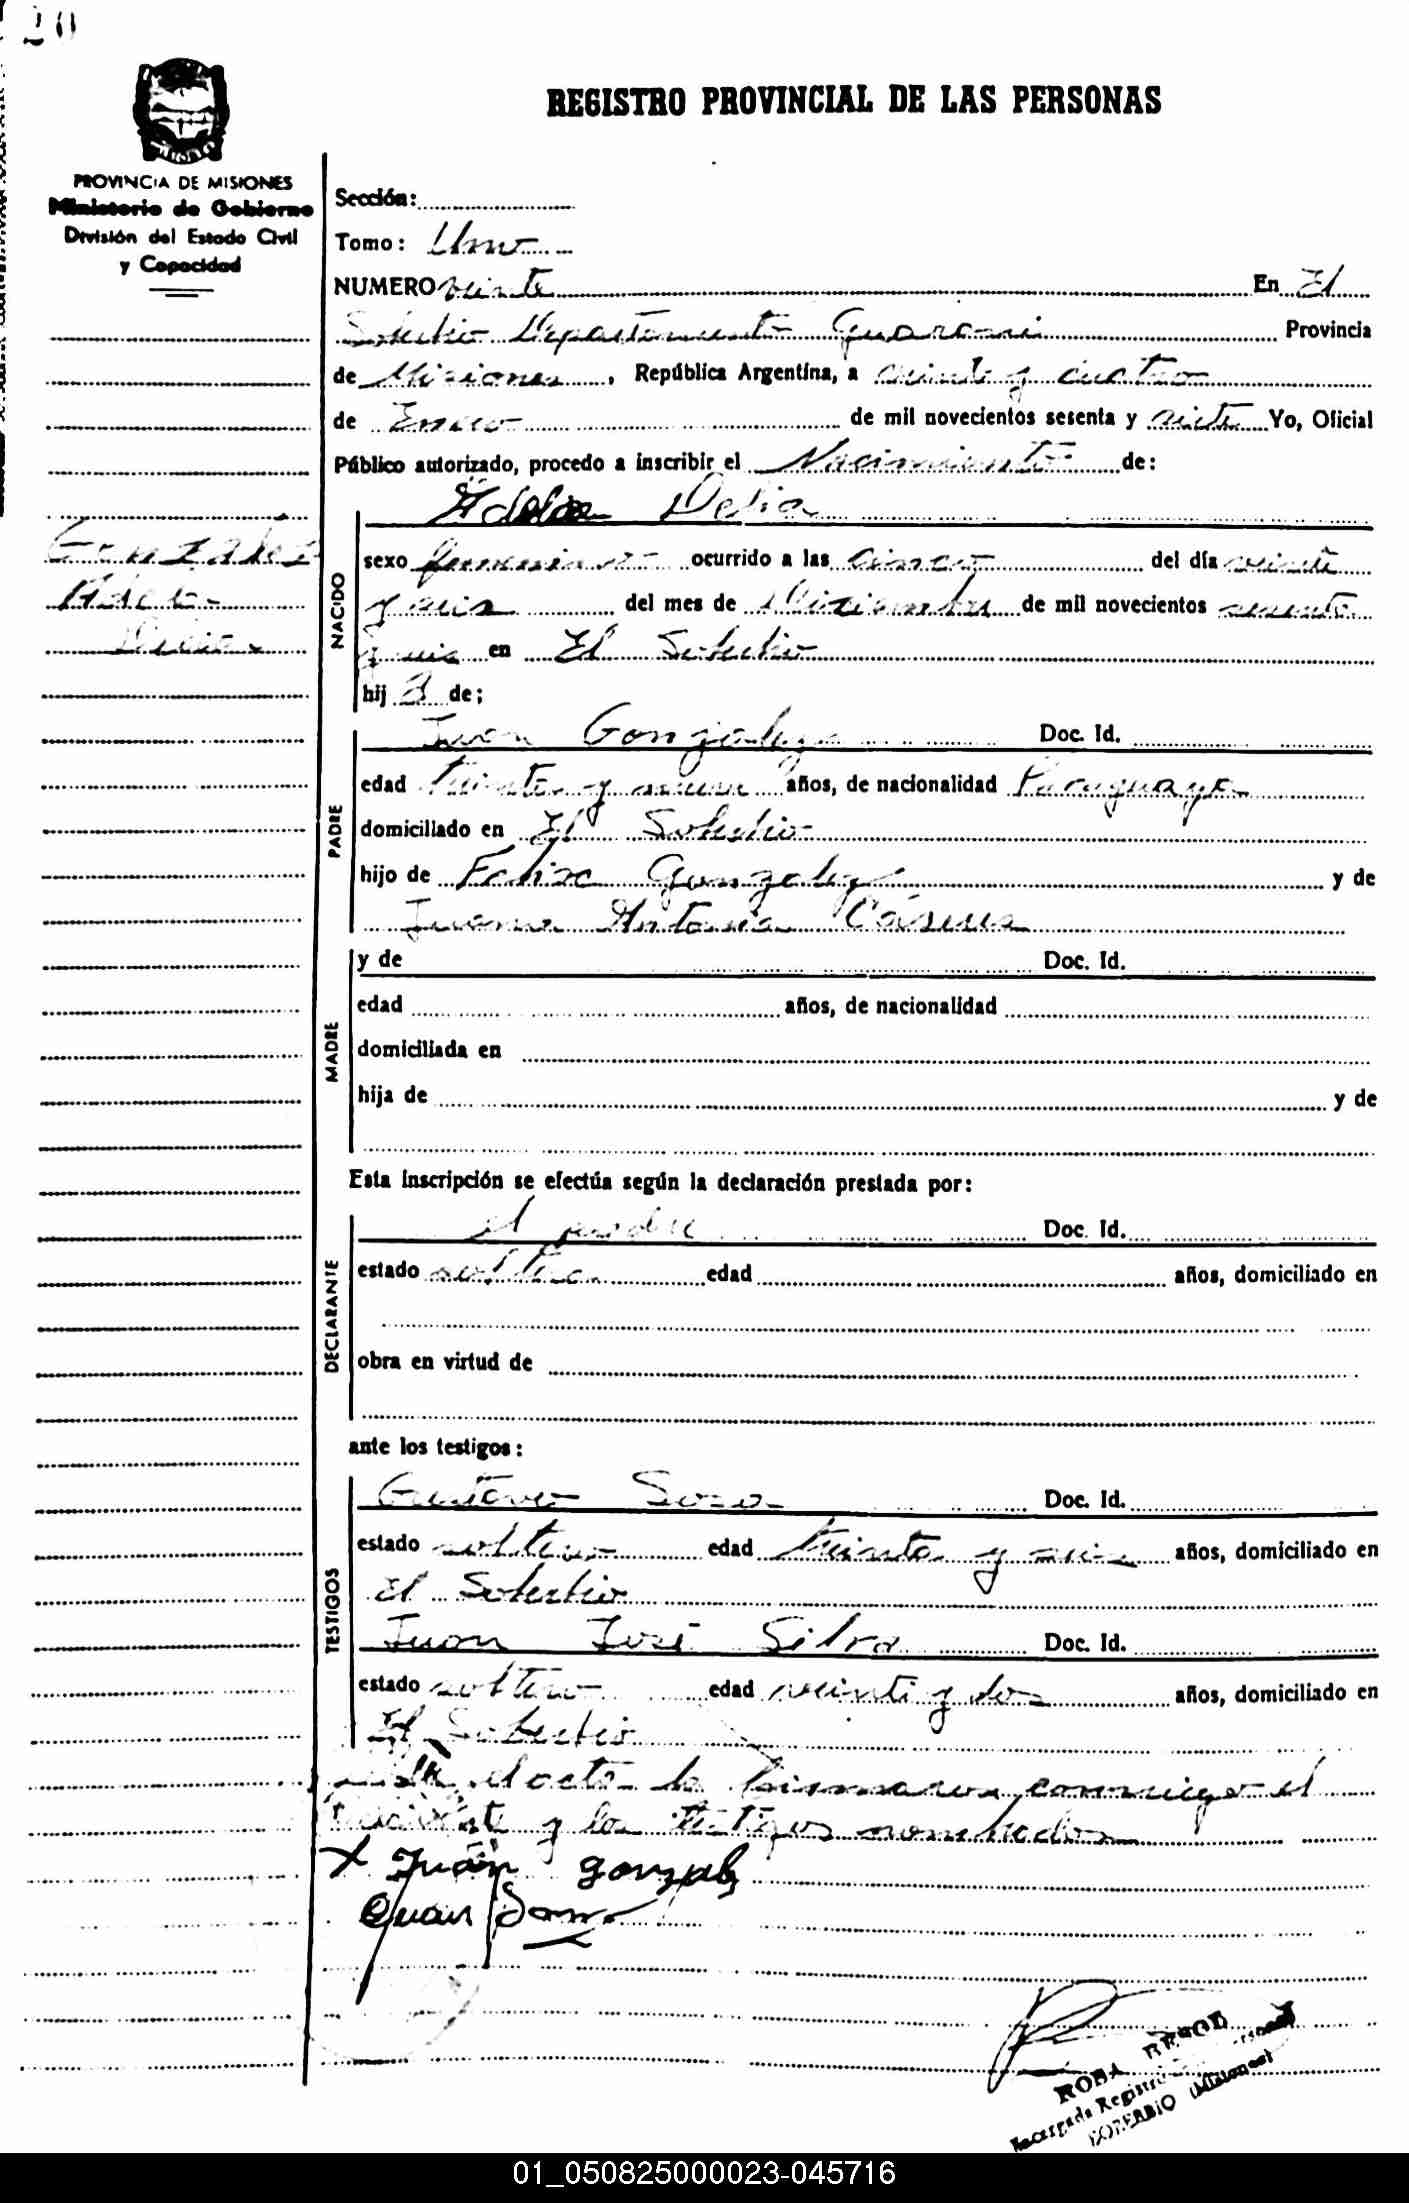 20
REGISTRO PROVINCIAL DE LAS PERSONAS
PROVINCIA DE MISIONES
Ministerio de Gobierno
División del Estado Civil
y Capacidad
Sección:
Tomo: Uno
NUMERO veinte En El
Soberbio Departamento Guaraní Provincia
de Misiones, República Argentina, a veinte y cuatro
de Enero de mil novecientos sesenta y siete Yo, Oficial
Público autorizado, procedo a inscribir el Nacimiento de:
Adela Delia
Gonzalez
Adela
Delia
NACIDO
sexo femenino ocurrido a las cinco del día veinte
y seis del mes de Diciembre de mil novecientos sesenta
y seis en El Soberbio
hija de;
PADRE
Juan Gonzalez Doc. Id.
edad treinta y nueve años, de nacionalidad Paraguaya
domiciliado en El Soberbio
hijo de Felix Gonzalez y de
Juana Antonia
MADRE
y de Doc. Id.
edad años, de nacionalidad
domiciliada en
hija de y de
Esta inscripción se efectúa según la declaración prestada por:
DECLARANTE
el padre Doc. Id.
estado soltero edad años, domiciliado en
obra en virtud de
ante los testigos:
TESTIGOS
Gustavo Doc. Id.
estado soltero edad treinta y seis años, domiciliado en
El Soberbio
Juan José Silva Doc. Id.
estado soltero edad veinti y dos años, domiciliado en
El Soberbio
el acta la firmaron conmigo el
y los testigos nombrados
x Juan gonzalez
Juan
ROSA
Encargada Registro
SOBERBIO (Misiones)
01_050825000023-045716